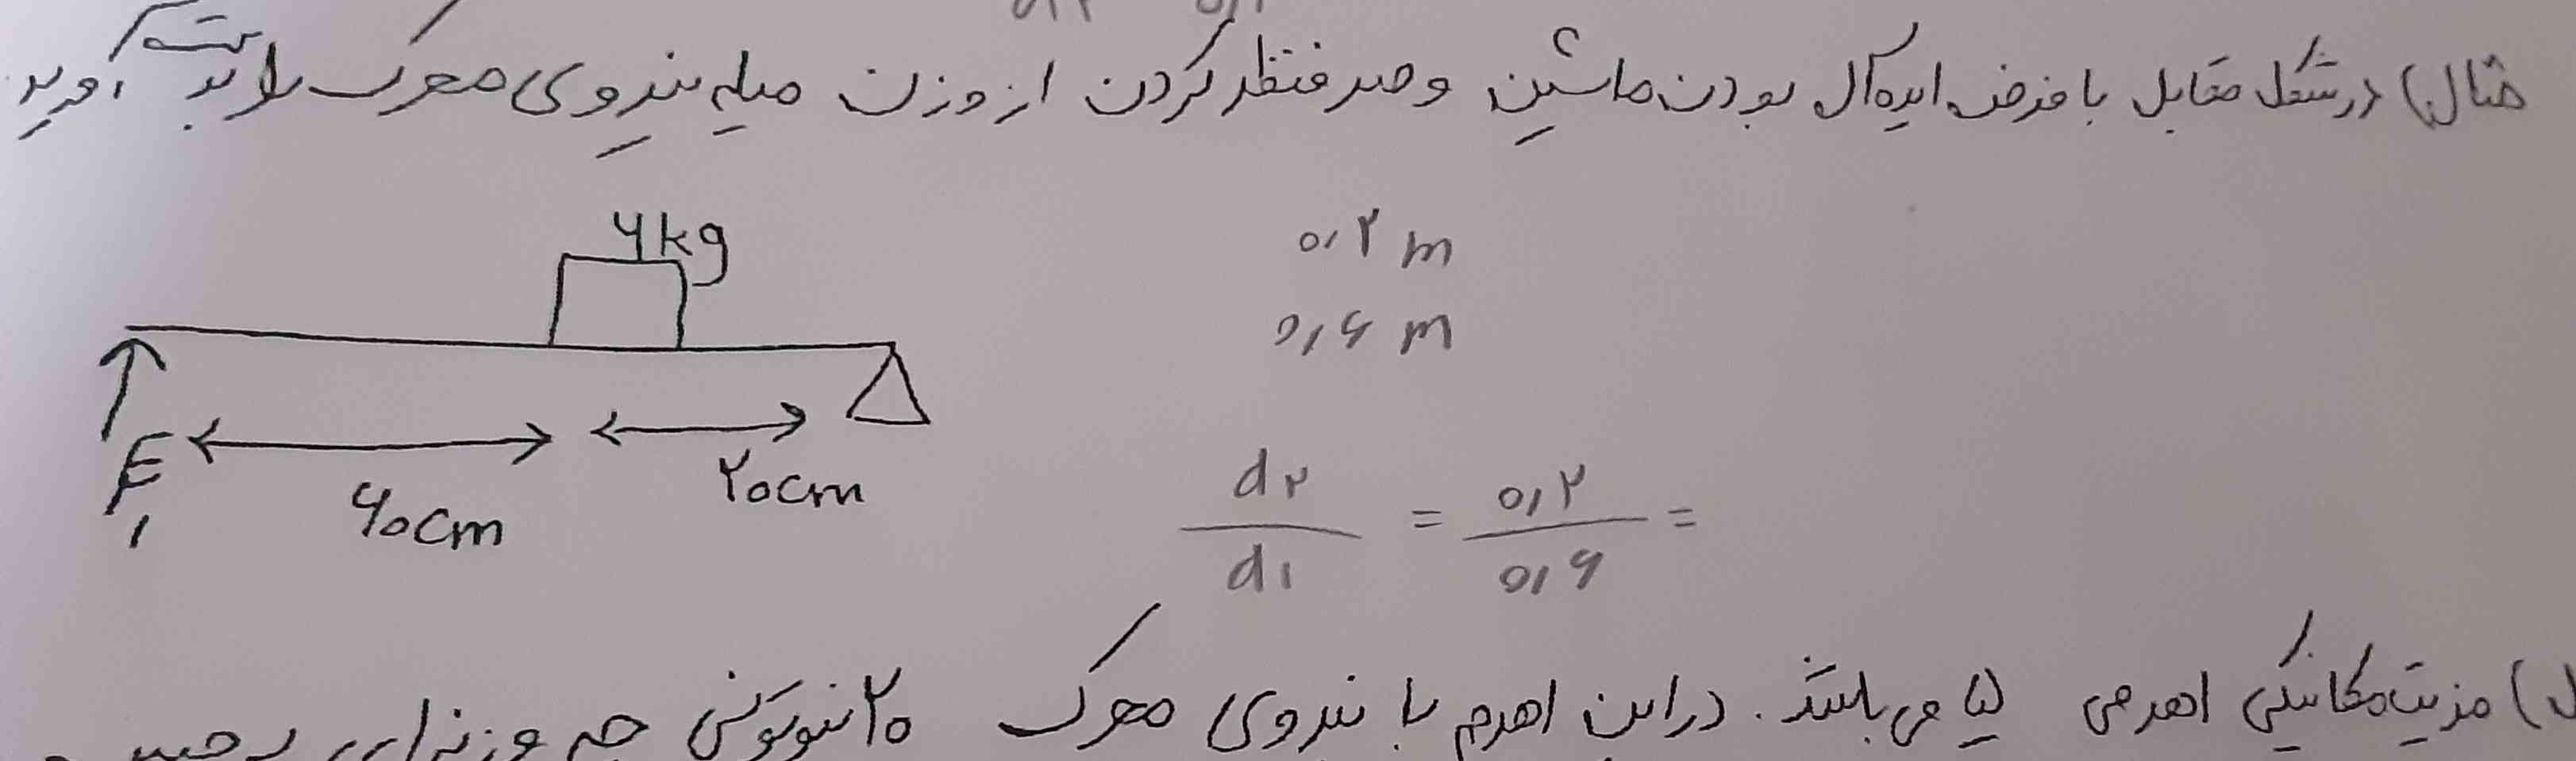 مثال) در شکل مقابل با فرض ایده‌آل بودن ماشین و صرفنظر کردن از وزن میله نیروی محرک را بدست آورید
۴kg
۰٫۲ m
۰٫۶ m
F۱
۶۰cm
۲۰cm
d۲ / d۱ = ۰٫۲ / ۰٫۶ =
مزیت مکانیکی اهرمی می‌باشد. در این اهرم با نیروی محرک ۲۰ نیوتونی چه وزنه‌ای